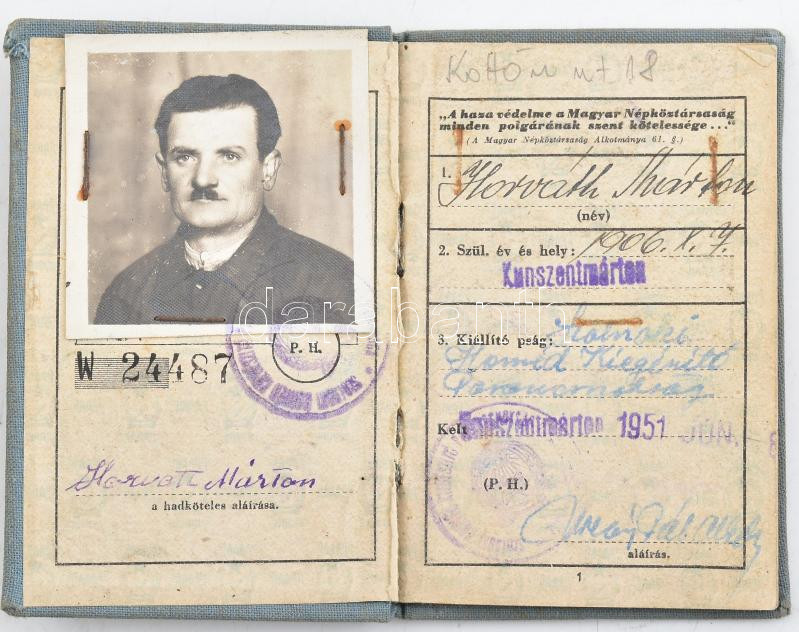 W 24487
P. H.
Horvath Márton
a hadköteles aláírása.
„A haza védelme a Magyar Népköztársaság
minden polgárának szent kötelessége ...“
(A Magyar Népköztársaság Alkotmánya 61. §.)
1. Horváth Márton
(név)
2. Szül. év és hely: 1906. X. 7.
Kunszentmárton
3. Kiállító pság: Szolnoki
Honvéd Kiegészítő
Parancsnokság
Kelt Kunszentmárton 1951 JUN.
(P. H.)
aláírás.
1
darabanth